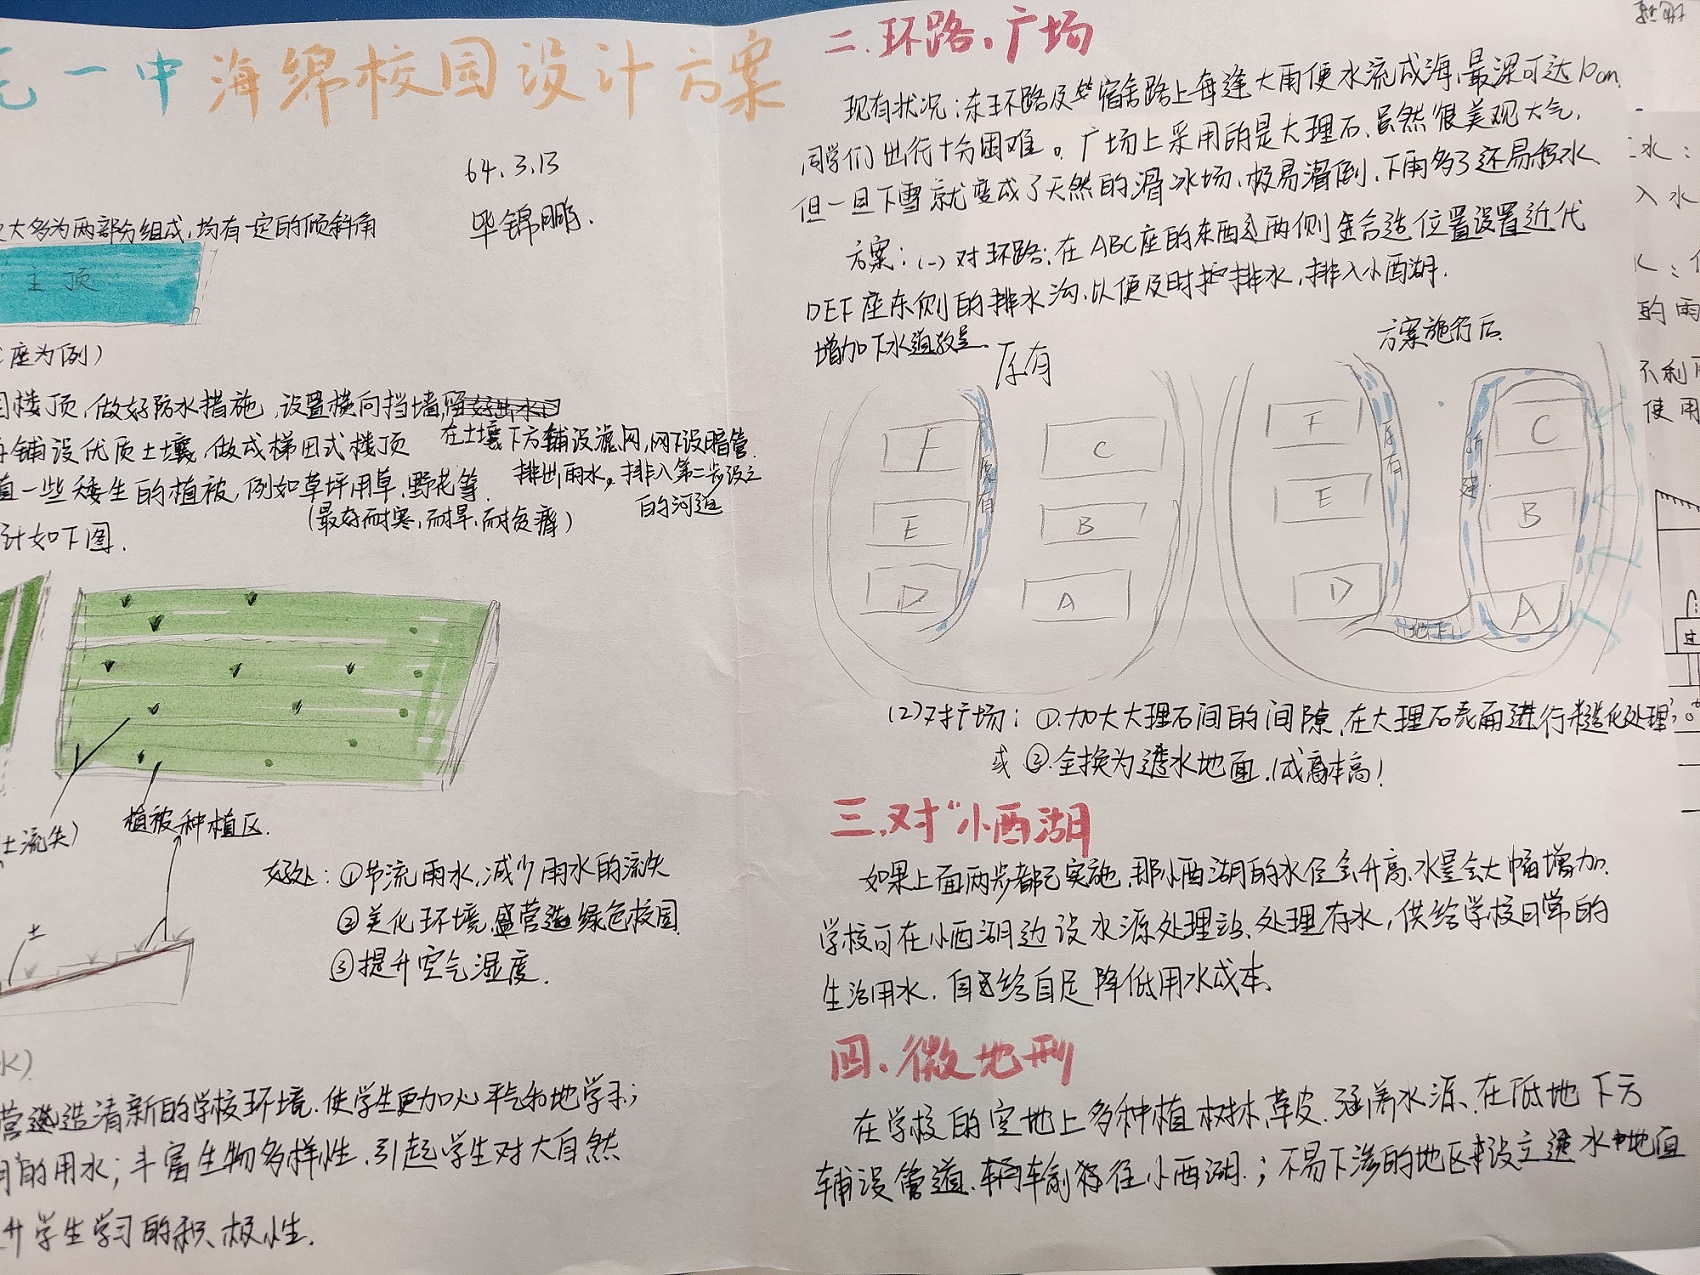 一中海绵校园设计方案
64.3.13
毕锦鹏.
大多为两部分组成,均有一定的倾斜角
主顶
座为例)
楼顶,做好防水措施,设置横向挡墙,
铺设优质土壤,做成梯田式楼顶
在土壤下方铺设滤网,网下设暗管.
排出雨水,排入第二步设立
的河道
一些矮生的植被,例如草坪用草.野花等.
(最好耐寒,耐旱,耐贫瘠)
计如下图.
土流失)
植被种植区.
好处:①节流雨水,减少雨水的流失
②美化环境,营造绿色校园.
③提升空气湿度.
土
水).
营造清新的学校环境.使学生更加心平气和地学习;
的用水;丰富生物多样性.引起学生对大自然
升学生学习的积极性.
二.环路、广场
现有状况:东环路及宿舍路上每逢大雨便水流成海,最深可达10cm.
同学们出行十分困难。广场上采用的是大理石,虽然很美观大气,
但一旦下雪就变成了天然的滑冰场,极易滑倒.下雨多了还易积水.
方案:(一)对环路:在ABC座的东西两侧合适位置设置近代
DEF座东侧的排水沟,以便及时排水,排入小西湖.
增加下水道数量.
原有
方案施行后.
F
C
原有
E
B
D
A
F
C
原有
新建
E
B
D
A
地下
(2)对广场:①.加大大理石间的间隙,在大理石表面进行糙化处理;
或②.全换为透水地面.(成本高!
三.对"小西湖
如果上面两步都已实施,那小西湖的水位会升高,水量会大幅增加.
学校可在小西湖边设水源处理站,处理存水,供给学校日常的
生活用水.自给自足降低用水成本.
四.微地形
在学校的空地上多种植树木,草皮.涵养水源、在低地下方
铺设管道.输往小西湖.;不易下渗的地区设立透水地面
水:
入水
的雨
不利用
使用
过